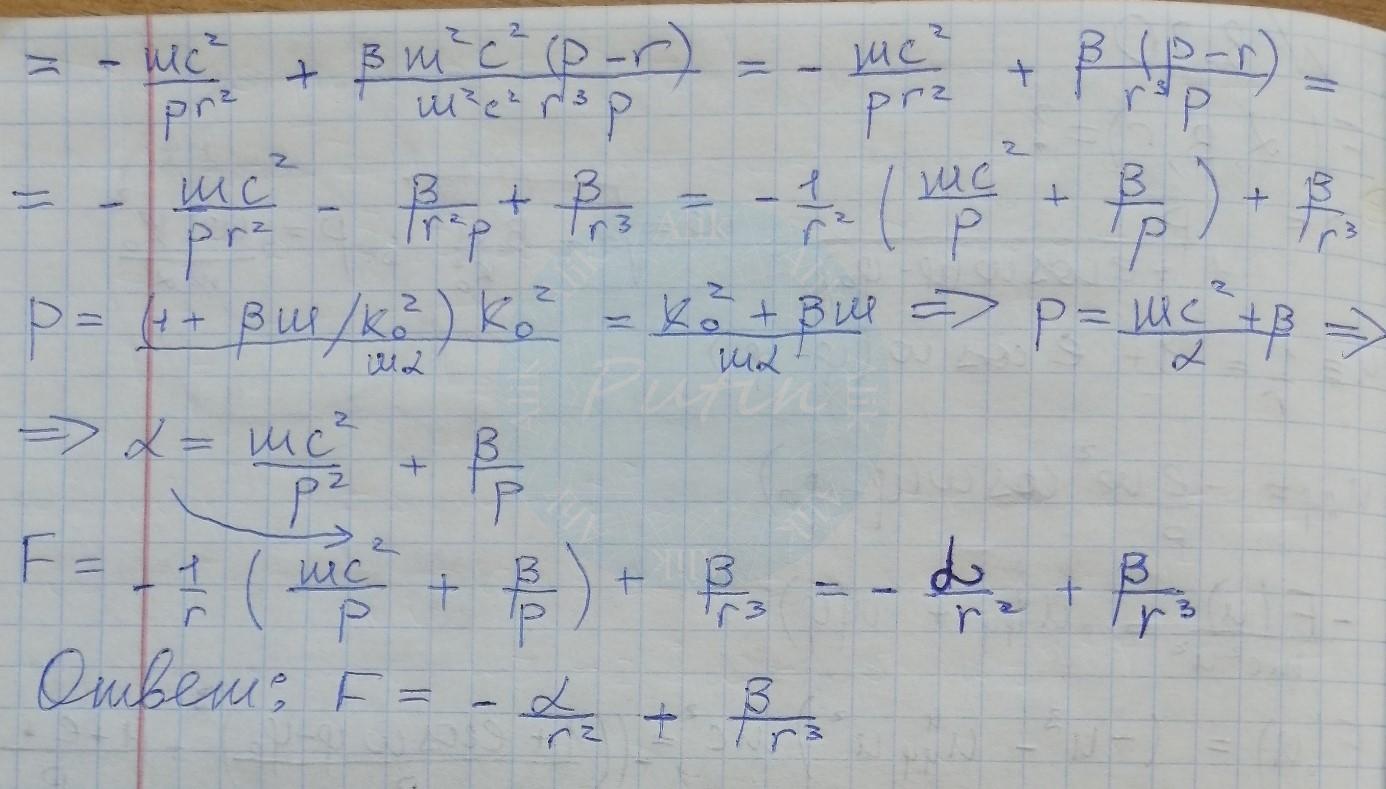 = - mc²/pr² + βm²c²(p-r)/m²c²r³p = - mc²/pr² + β(p-r)/r³p =
= - mc²/pr² - β/r²p + β/r³ = - 1/r² (mc²/p + β/p) + β/r³
p = (1 + βm/k₀²)k₀²/mα = k₀² + βm/mα => p = mc² + β/α =>
=> α = mc²/p² + β/p
F = - 1/r (mc²/p + β/p) + β/r³ = - α/r² + β/r³
Ответ: F = - α/r² + β/r³
Putin